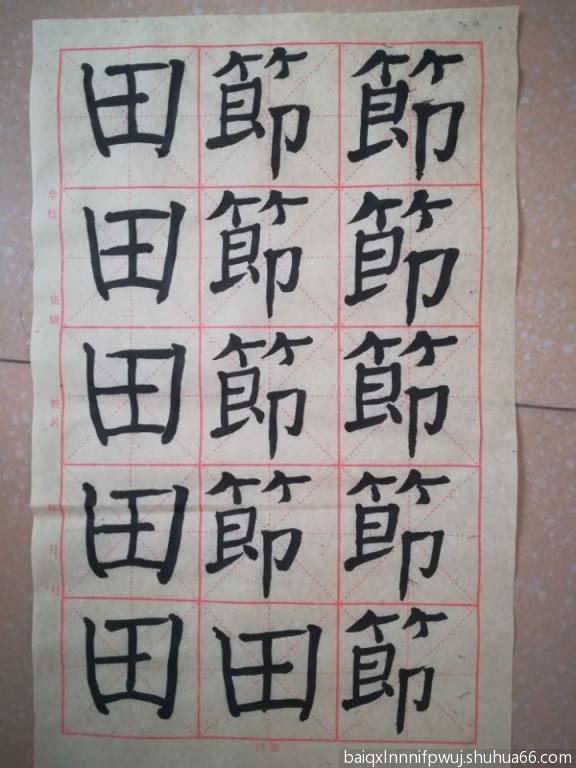 節節節節節
節節節節田
田田田田田
学校 班级 姓名 年 月 日
baiqxlnnnifpwuj.shuhua66.com